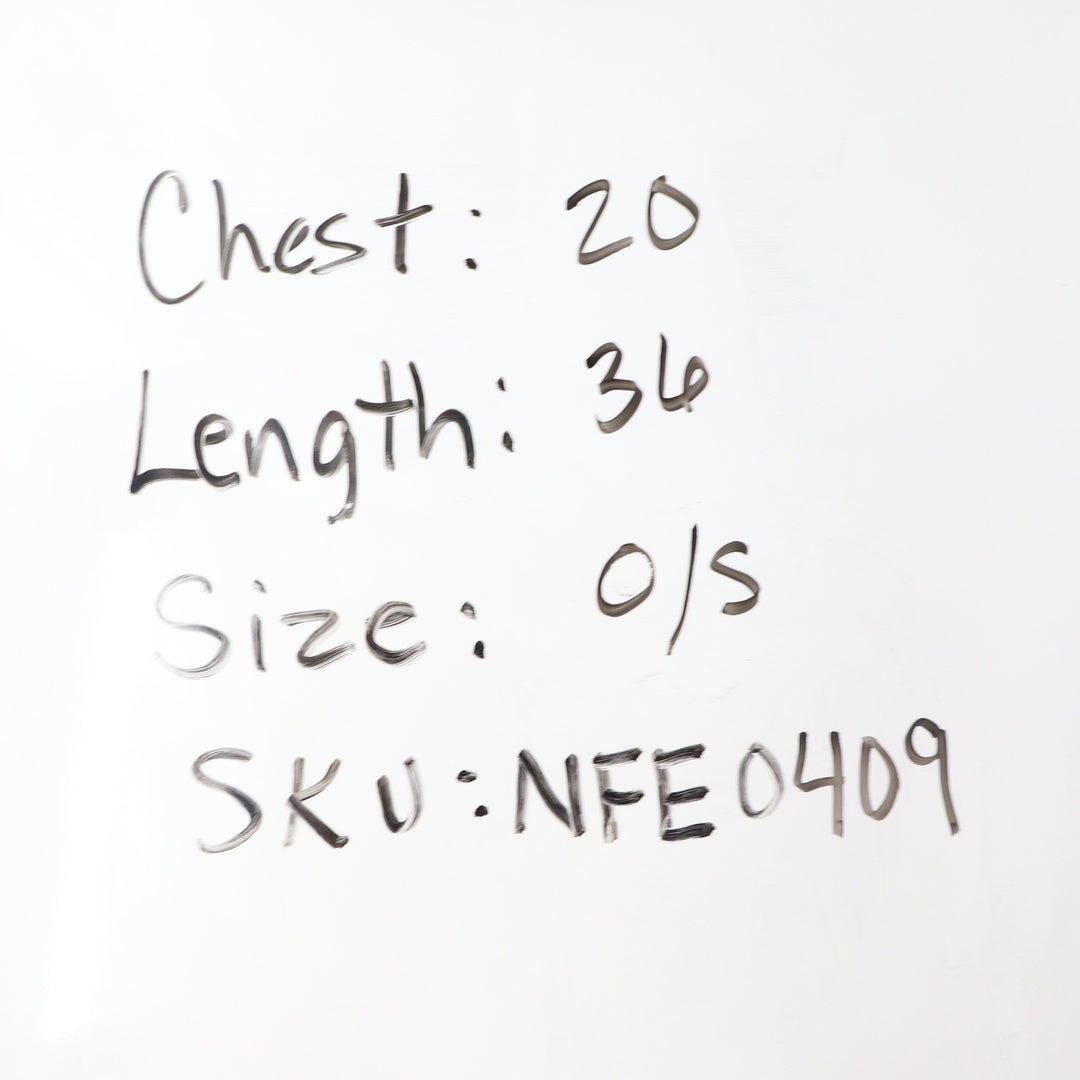 Chest: 20
Length: 36
Size: O/S
SKU: NFE0409